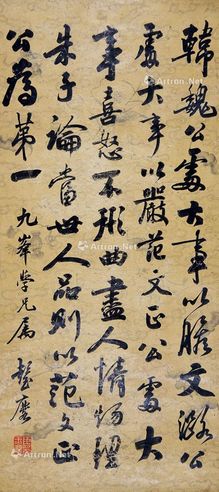 韓魏公處大事以膽文潞公
處大事以嚴范文正公處大
事喜怒不形曲盡人情物理
朱子論當世人品則以范文正
公為第一 九峯學兄屬
Artron.Net
Artron.Net